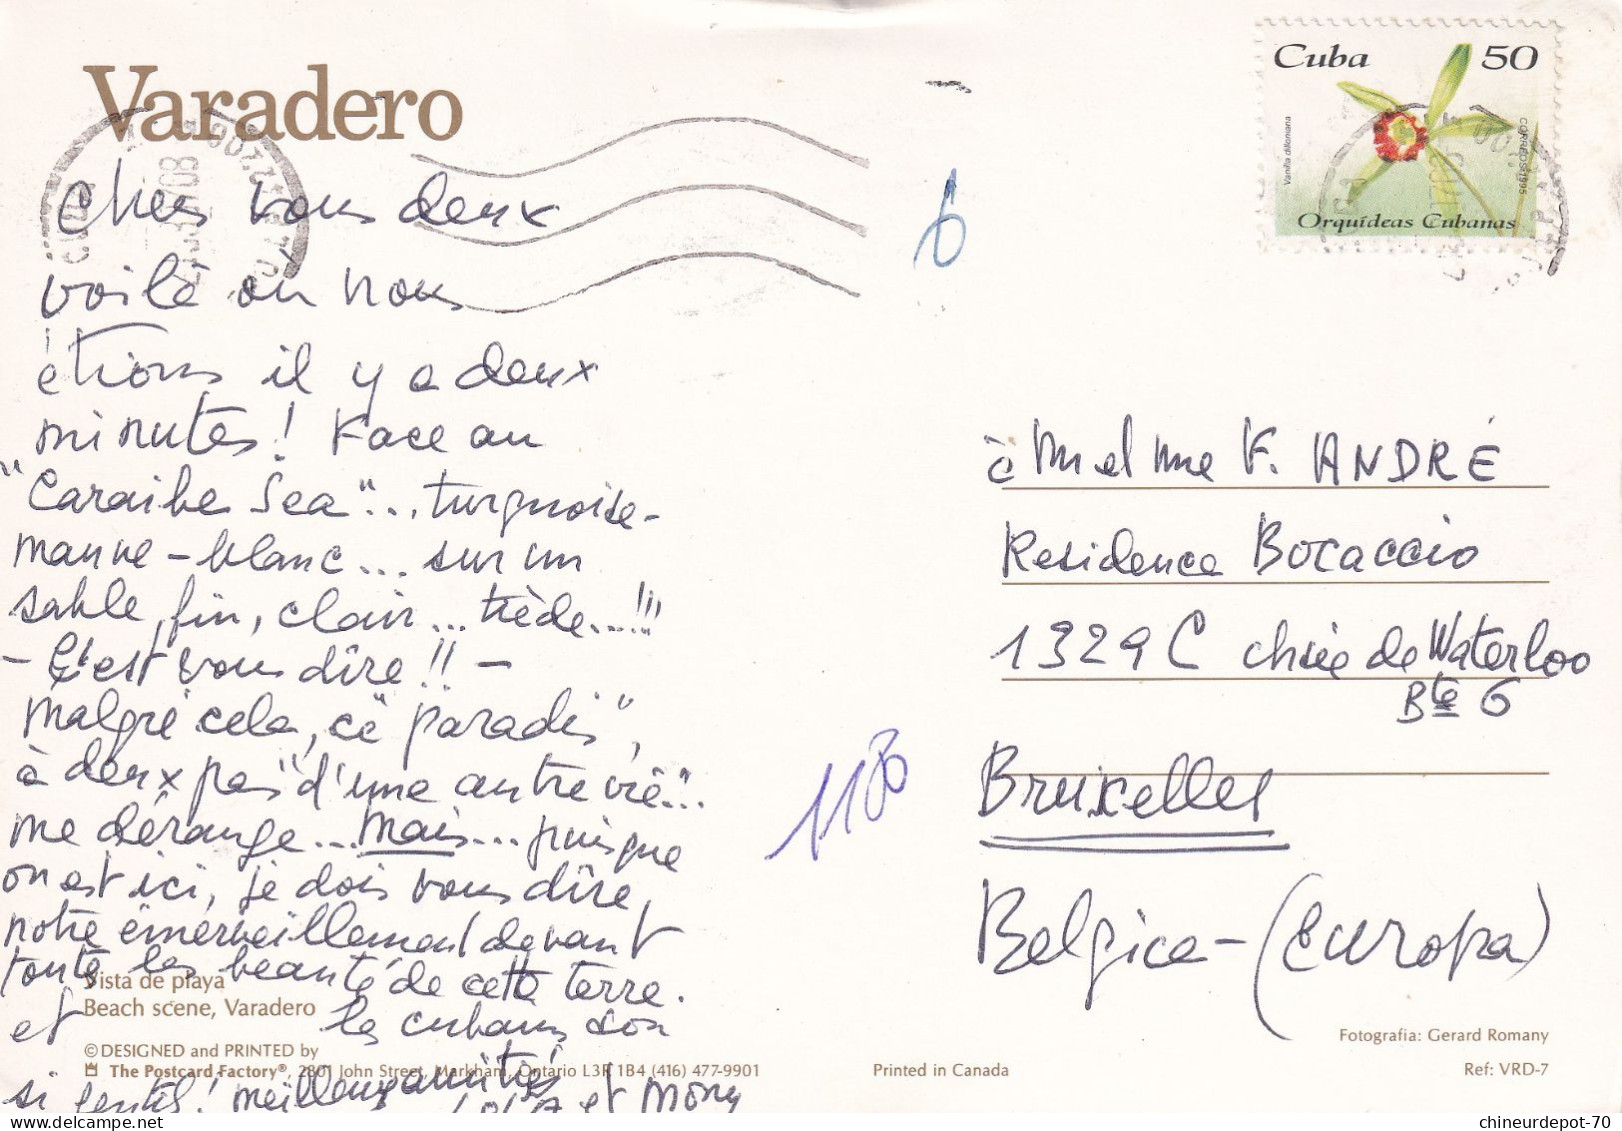 Varadero
Cuba 50
Vanilla dilloniana
CORREOS 1995
Orquídeas Cubanas
Chers vous deux
voilà où nous
étions il y a deux
minutes ! Face au
"Caraibe Sea"... turquoise-
mauve - blanc... sur un
sable, fin, clair... tiède...!!!
- C'est vous dire !! -
Malgré cela, ce "paradis",
à deux pas "d'une autre vie"...
me dérange... mais... puisque
on est ici, je dois vous dire,
notre émerveillement devant
toute les beauté de cette terre.
et les cubains son
si gentils ! meilleures amitiés
LOLA et Mony
6
1180
à Mr et Mme F. ANDRÉ
Residence Bocaccio
1329 C chsée de Waterloo
Bte 6
Bruxelles
Belgica - (Europa)
Vista de playa
Beach scene, Varadero
© DESIGNED and PRINTED by
The Postcard Factory®, 2801 John Street, Markham, Ontario L3R 1B4 (416) 477-9901
Printed in Canada
Fotografia: Gerard Romany
Ref: VRD-7
chineurdepot-70